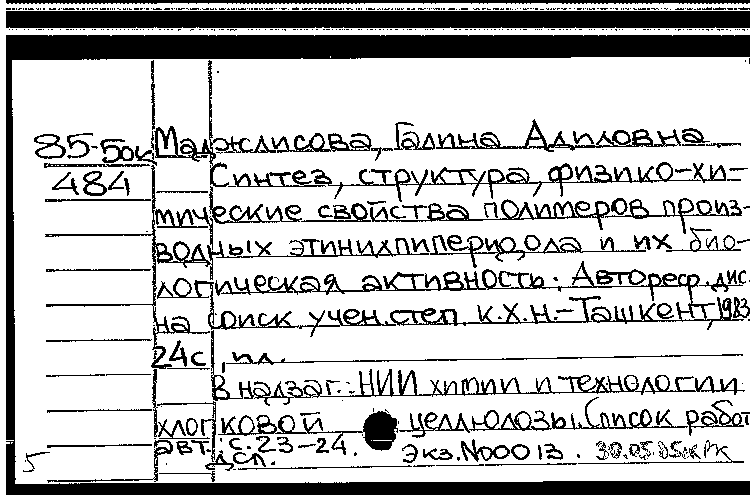 85-5ок Маджлисова, Галина Адиловна.
484 Синтез, структура, физико-хи-
мические свойства полимеров произ-
водных этинилпиперидола и их био-
логическая активность: Автореф. дис.
на соиск учен. степ. к.х.н. - Ташкент, 1983
24с., ил.
В надзаг.: НИИ химии и технологии
хлопковой целлюлозы. Список работ
авт. с. 23-24. Экз. N00013.
5 дсп.